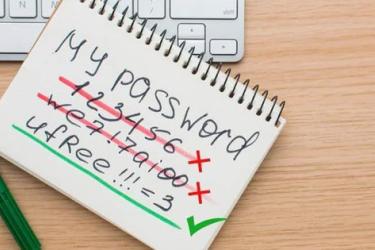 My password
123456
we7!7ai00
ufRee!!!=3